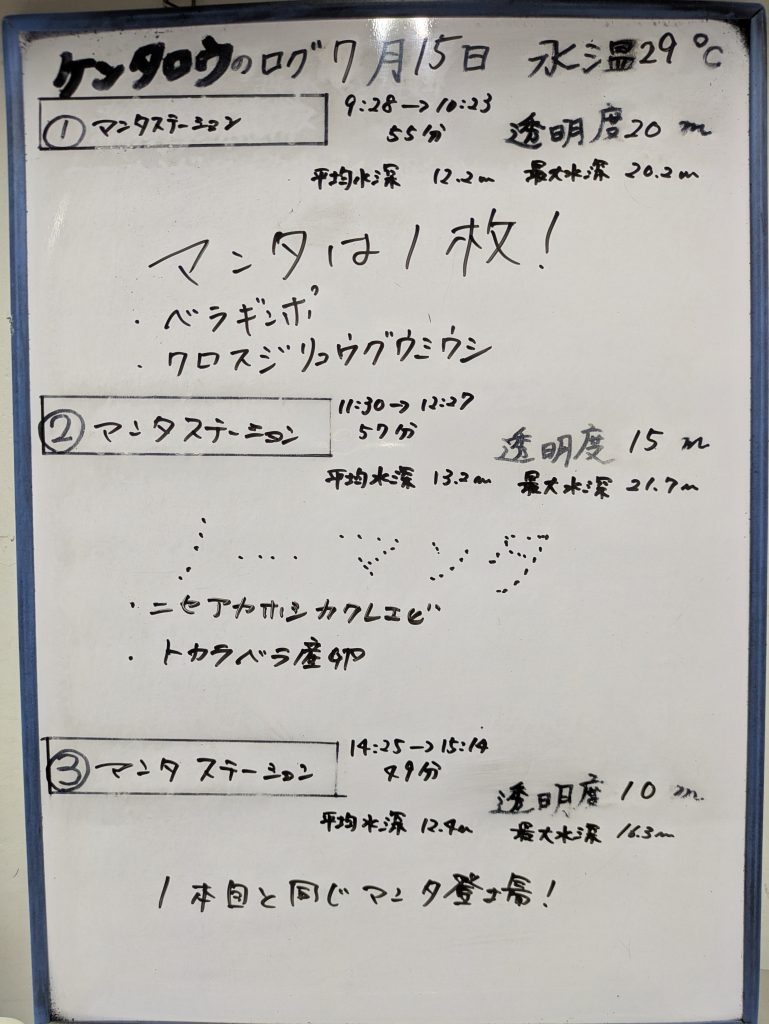 ケンタロウのログ 7月15日 水温29℃
① マンタステーション
9:28→10:23
55分
透明度20m
平均水深 12.2m 最大水深 20.2m
マンタは1枚!
・ベラギンポ
・クロスジリュウグウミウシ
② マンタステーション
11:30→12:27
57分
透明度 15m
平均水深 13.2m 最大水深 21.7m
ノーマンタ
・ニセアカホシカクレエビ
・トカラベラ産卵
③ マンタステーション
14:25→15:14
49分
透明度 10m
平均水深 12.4m 最大水深 16.3m
1本目と同じマンタ登場!